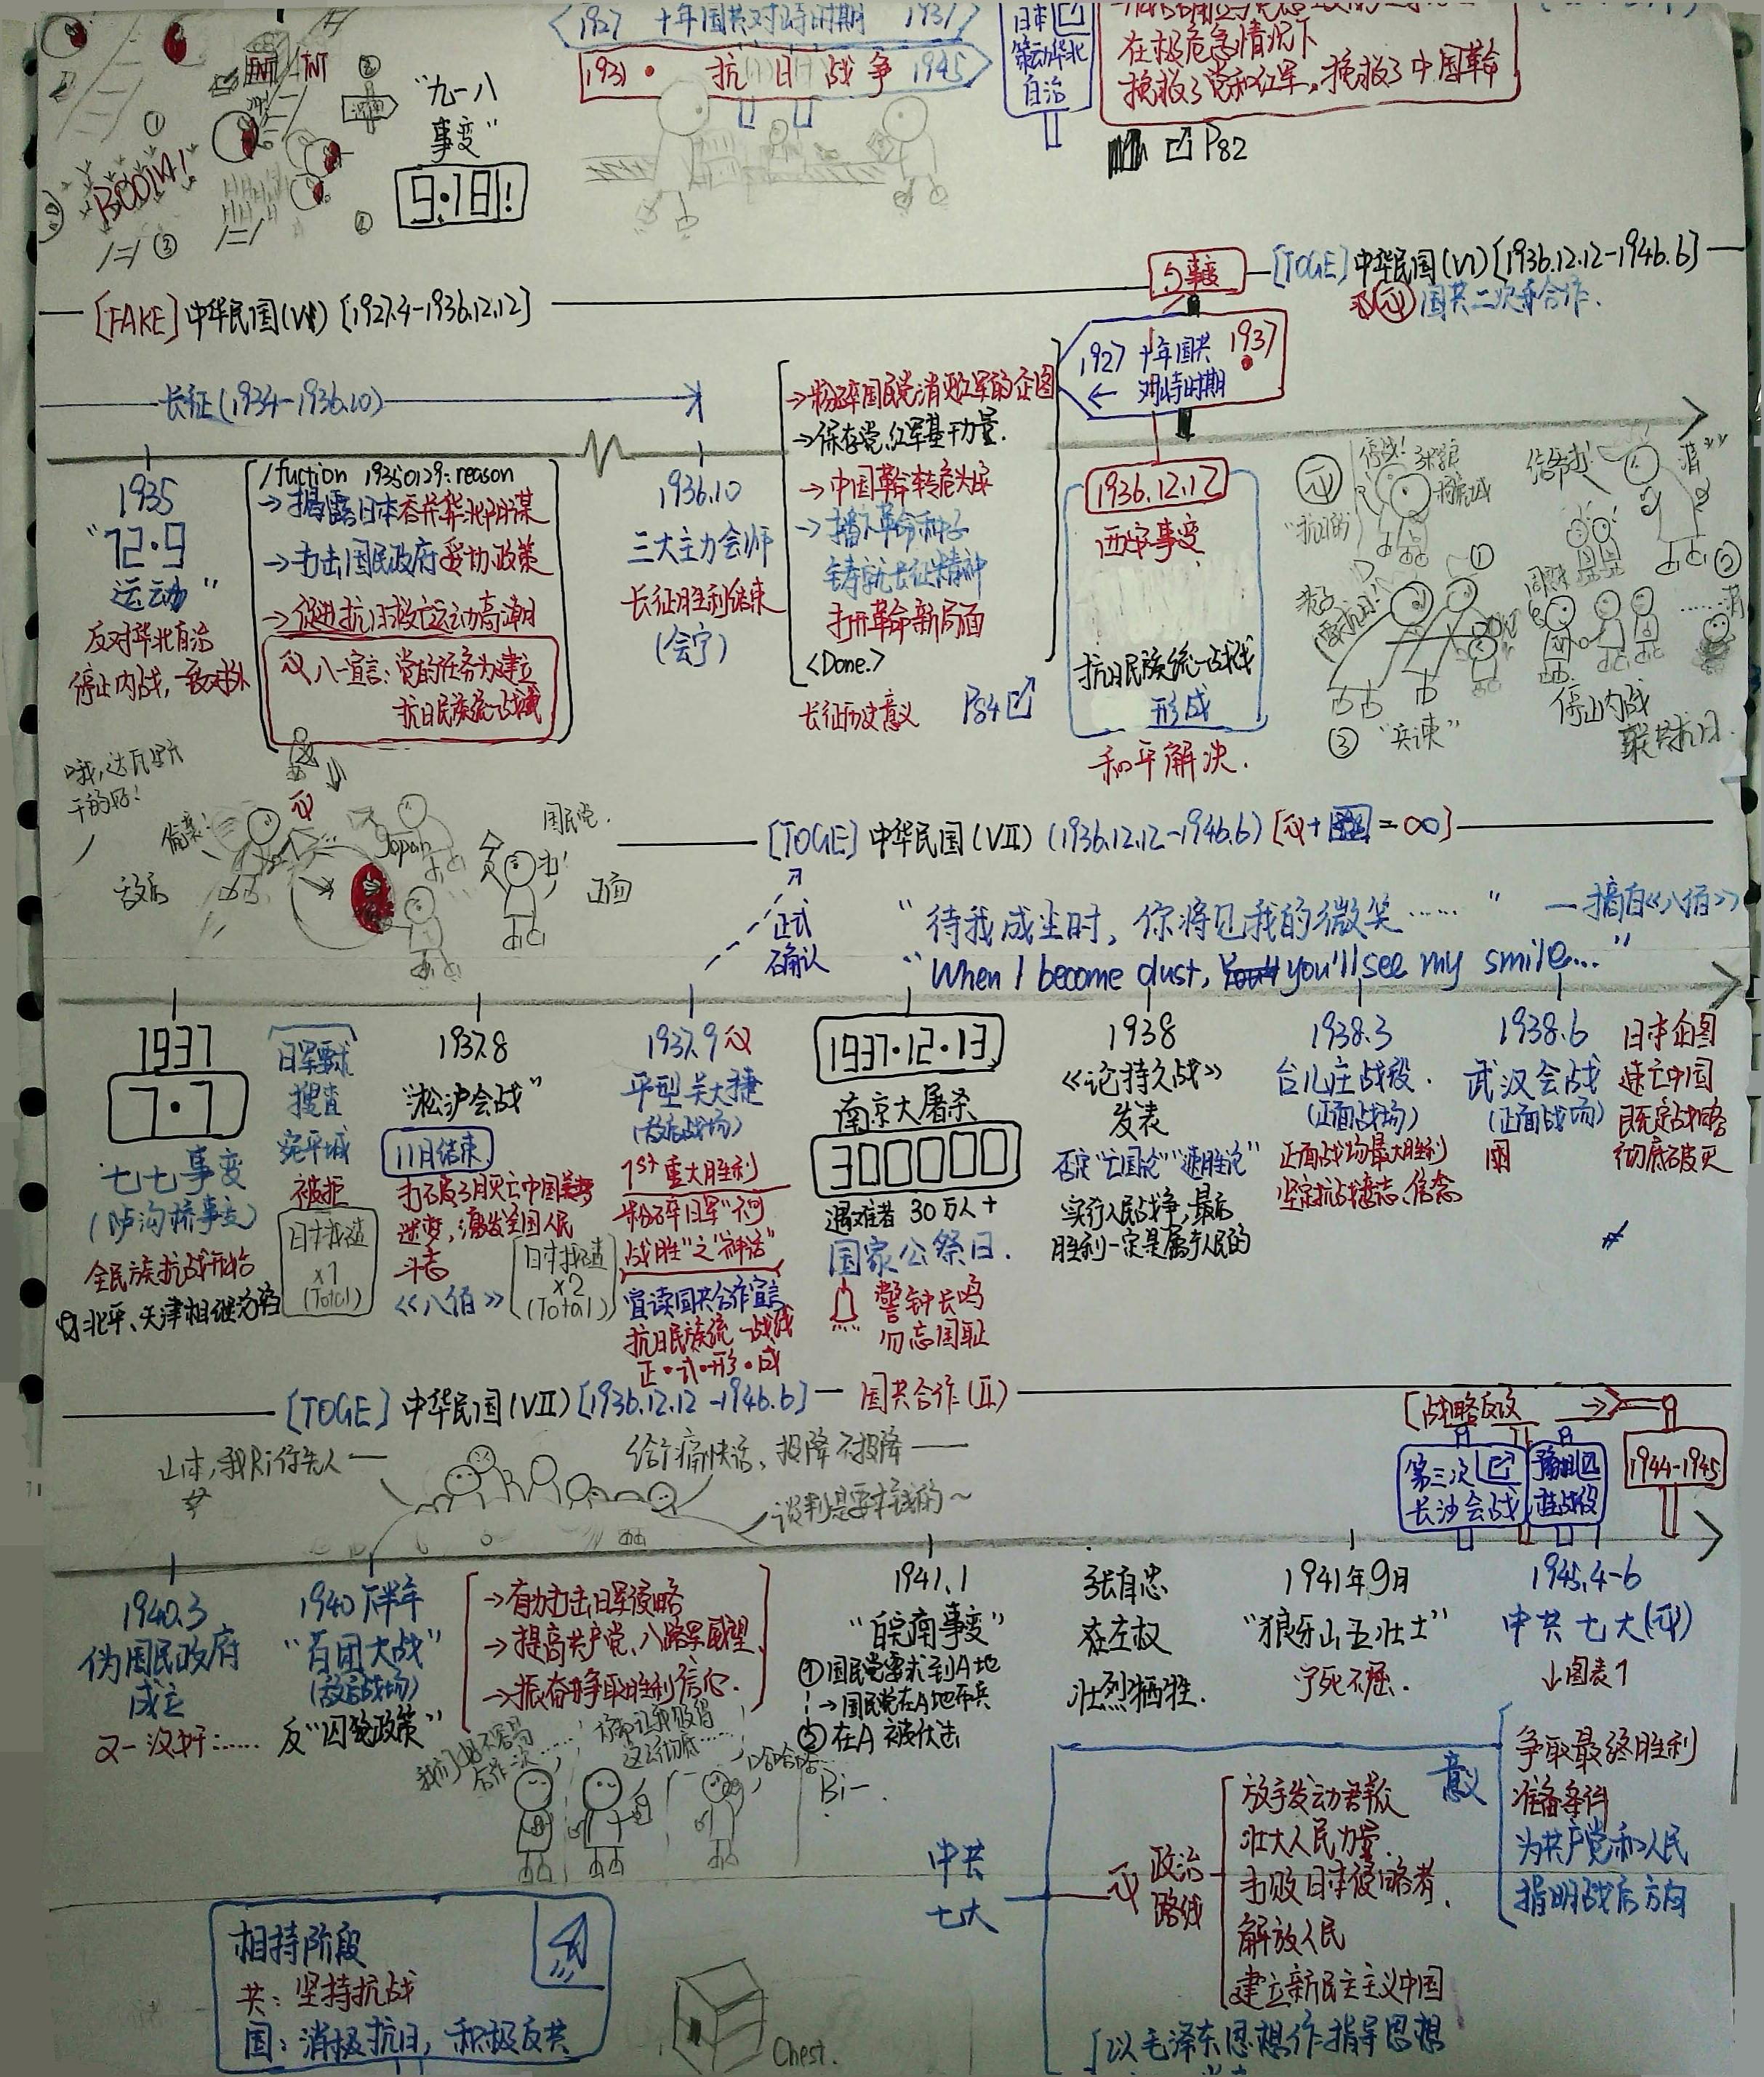 1927 十年国共对峙时期 1937
1931 · 抗日战争 1945
日本
策动华北
自治
在极危急情况下
挽救了党和红军。挽救了中国革命
P82
TNT TNT
BOOM!
①
②
③
"九一八
事变"
9·18!
[FAKE] 中华民国(VI) [1927.4-1936.12.12]
事变
[TOGE] 中华民国(VI) [1936.12.12-1946.6]
国共二次合作.
长征(1934-1936.10)
1927 十年国共 1937
← 对峙时期
1935
"12·9
运动"
反对华北自治
停止内战,一致对外
/fuction 19350129:reason
→揭露日本吞并华北阴谋
→打击国民政府妥协政策
→促进抗日救亡运动高潮
八一宣言:党的任务为建立
抗日民族统一战线
1936.10
三大主力会师
长征胜利结束
(会宁)
→粉碎国民党消灭红军的企图
→保存党,红军基干力量.
→中国革命转危为安
→播下革命种子
铸就长征精神
打开革命新局面
<Done.>
长征历史意义 P84
1936.12.12
西安事变
抗日民族统一战线
形成
和平解决.
停战!
①
②
③ "兵谏"
停止内战
联共抗日.
哦,达瓦里氏
干的好!
偷袭!
敌后
Japan
国民党.
正面
[TOGE] 中华民国(VII) (1936.12.12-1946.6)
正式
确认
"待我成尘时,你将见我的微笑……" —摘自《八佰》
"When I become dust, you'll see my smile..."
1937
7·7
七七事变
(卢沟桥事变)
全民族抗战开始
北平、天津相继沦陷
日军要求
搜查
宛平城
被拒
日本找碴
x1
(Total)
1937.8
"淞沪会战"
11月结束
打破3月灭亡中国
迷梦,激发全国人民
斗志
《八佰》
日本找碴
x2
(Total)
1937.9
平型关大捷
(敌后战场)
1st 重大胜利
粉碎日军"不可
战胜"之"神话"
宣读国共合作宣言
抗日民族统一战线
正·式·形·成
1937·12·13
南京大屠杀
300000
遇难者 30万人+
国家公祭日.
警钟长鸣
勿忘国耻
1938
《论持久战》
发表
否定"亡国论""速胜论"
实行人民战争,最后
胜利一定是属于人民的
1938.3
台儿庄战役.
(正面战场)
正面战场最大胜利
坚定抗战意志、信念
1938.6
武汉会战
(正面战场)
日本企图
速亡中国
既定战略
彻底破灭
[TOGE] 中华民国(VII) [1936.12.12-1946.6] — 国共合作(II)
山本,我Ri你先人—
给个痛快话,投降不投降——
谈判是要本钱的~
[战略反攻
第三次
长沙会战
豫湘
桂战役
1944-1945
1940.3
伪国民政府
成立
又一汉奸……
1940下半年
"百团大战"
(敌后战场)
反"囚笼政策"
→有力打击日军侵略
→提高共产党、八路军威望
→振奋争取胜利信心.
1941.1
"皖南事变"
①国民党要求到A地
→国民党在A地布兵
②在A被伏击
张自忠
左权
壮烈牺牲.
1941年9月
"狼牙山五壮士"
宁死不屈.
1945.4-6
中共七大
↓图表1
我们好不容易
合作一次……
哈哈哈
Bi-
中共
七大
政治
路线
放手发动群众
壮大人民力量.
打败日本侵略者,
解放人民
建立新民主主义中国
意义
争取最终胜利
准备条件
为共产党和人民
指明战后方向
以毛泽东思想作指导思想
相持阶段
共:坚持抗战
国:消极抗日,积极反共
Chest.